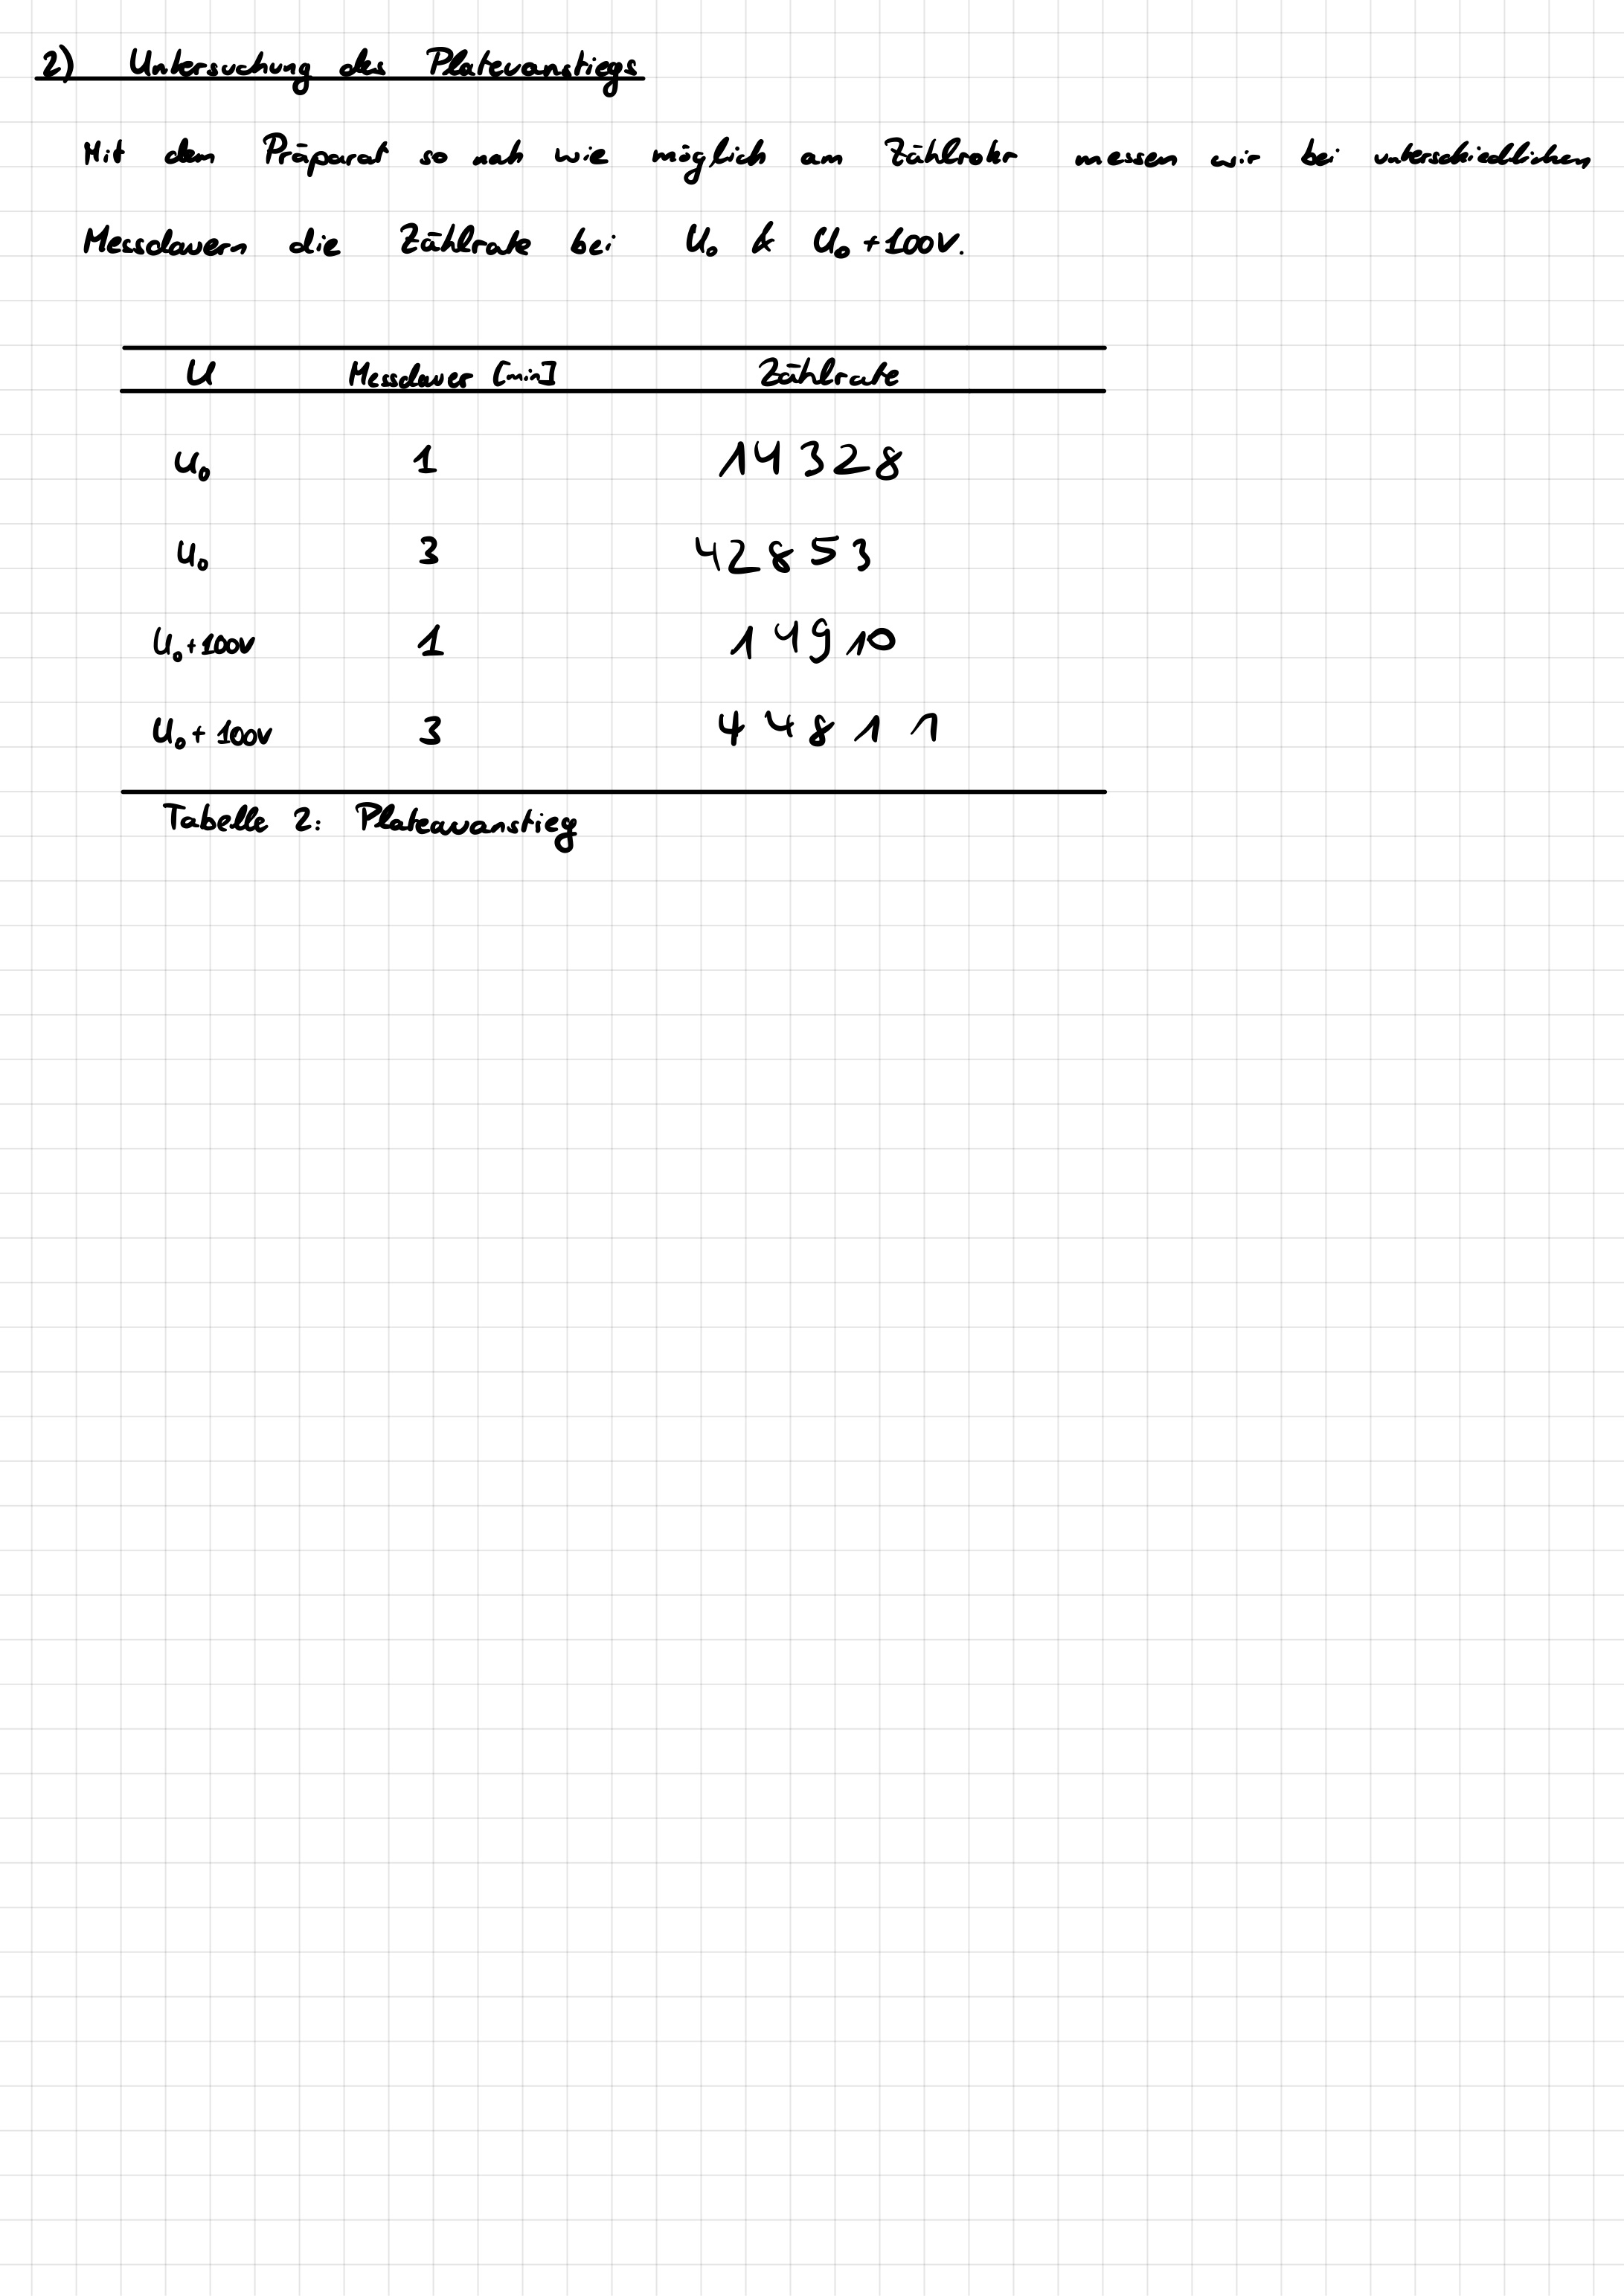 2) Untersuchung des Platevanstiegs
Mit dem Präparat so nah wie möglich am Zählrohr messen wir bei unterschiedlichen
Messdauern die Zählrate bei U₀ & U₀ +100V.
U Messdauer [min] Zählrate
U₀ 1 14328
U₀ 3 42853
U₀+100V 1 14910
U₀+100V 3 44811
Tabelle 2: Plateauanstieg